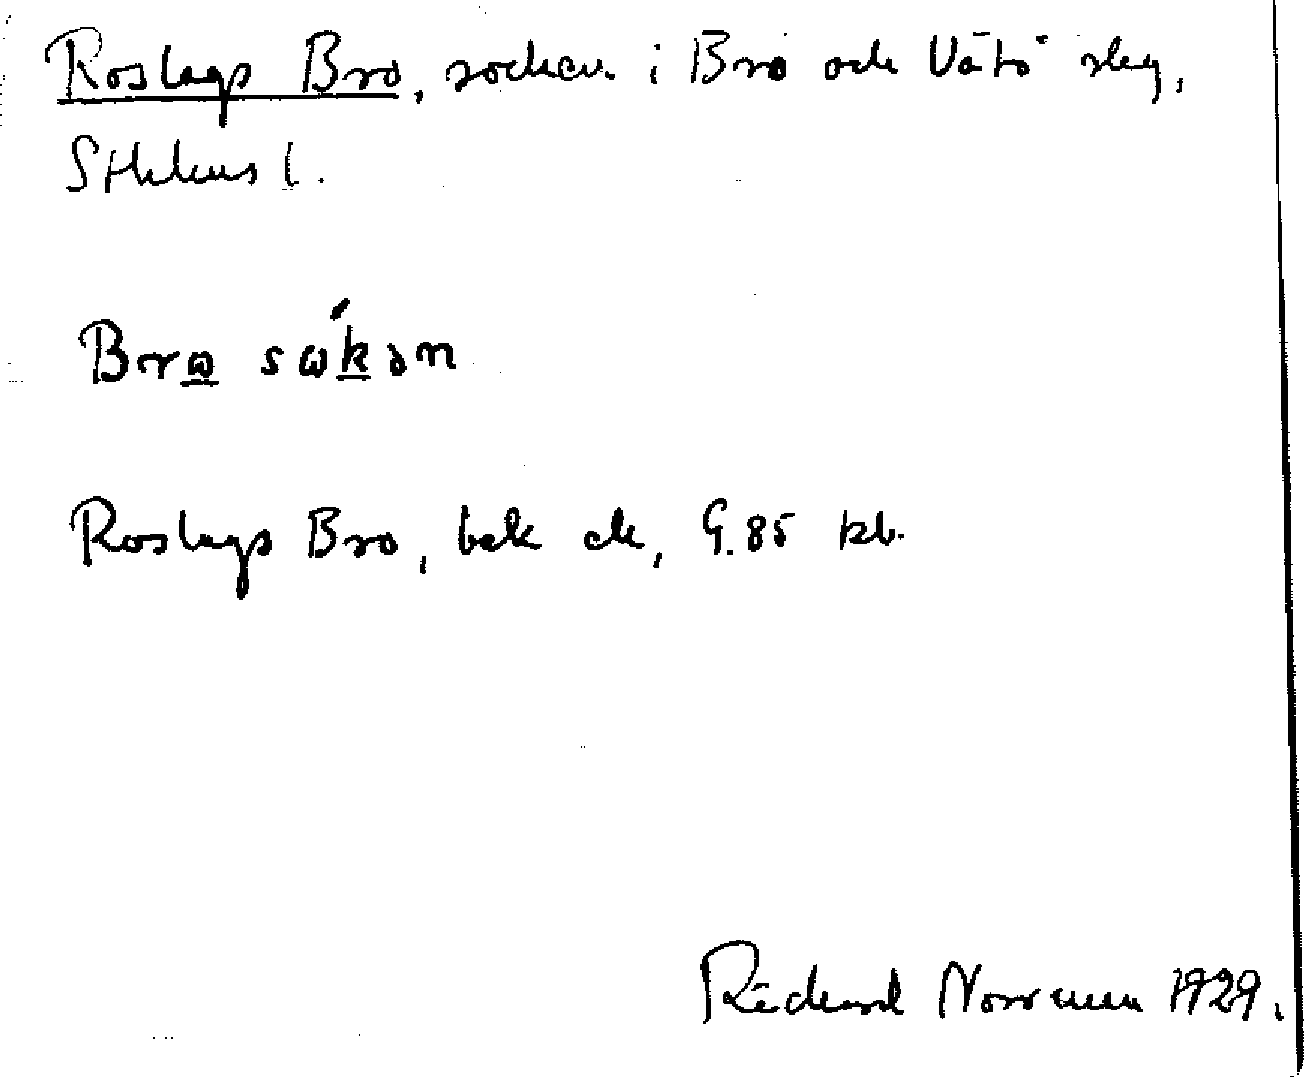 Roslags Bro, socken i Bro och Vätö slg,
Sthlms l.
Brω sωkən
Roslags Bro, bek ek, G.85 kb.
Richard Norrman 1929.